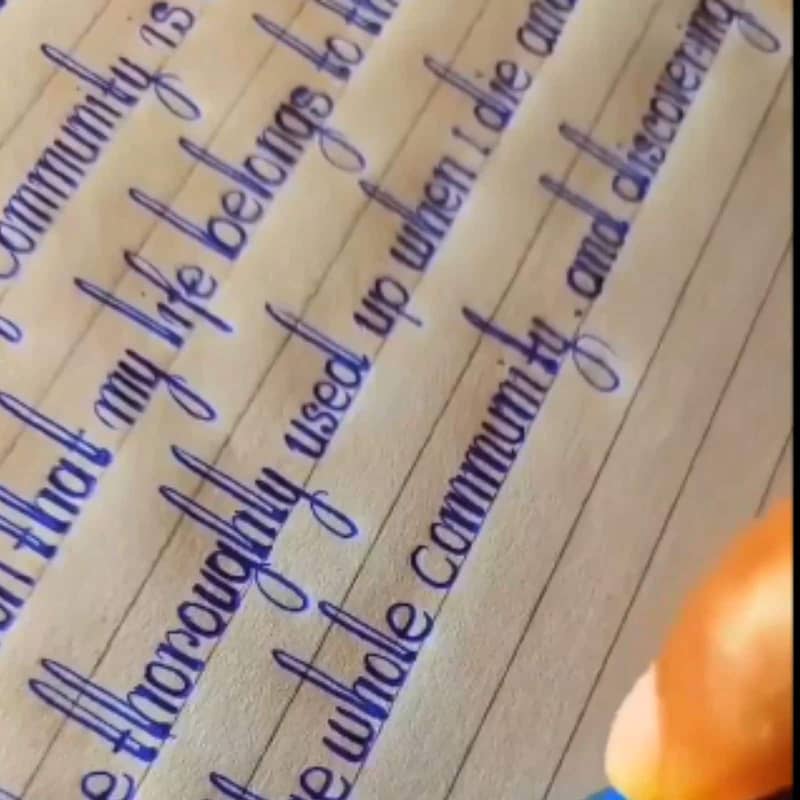 community is
that my life belongs to
thoroughly used up when I die and
whole community. and discovering